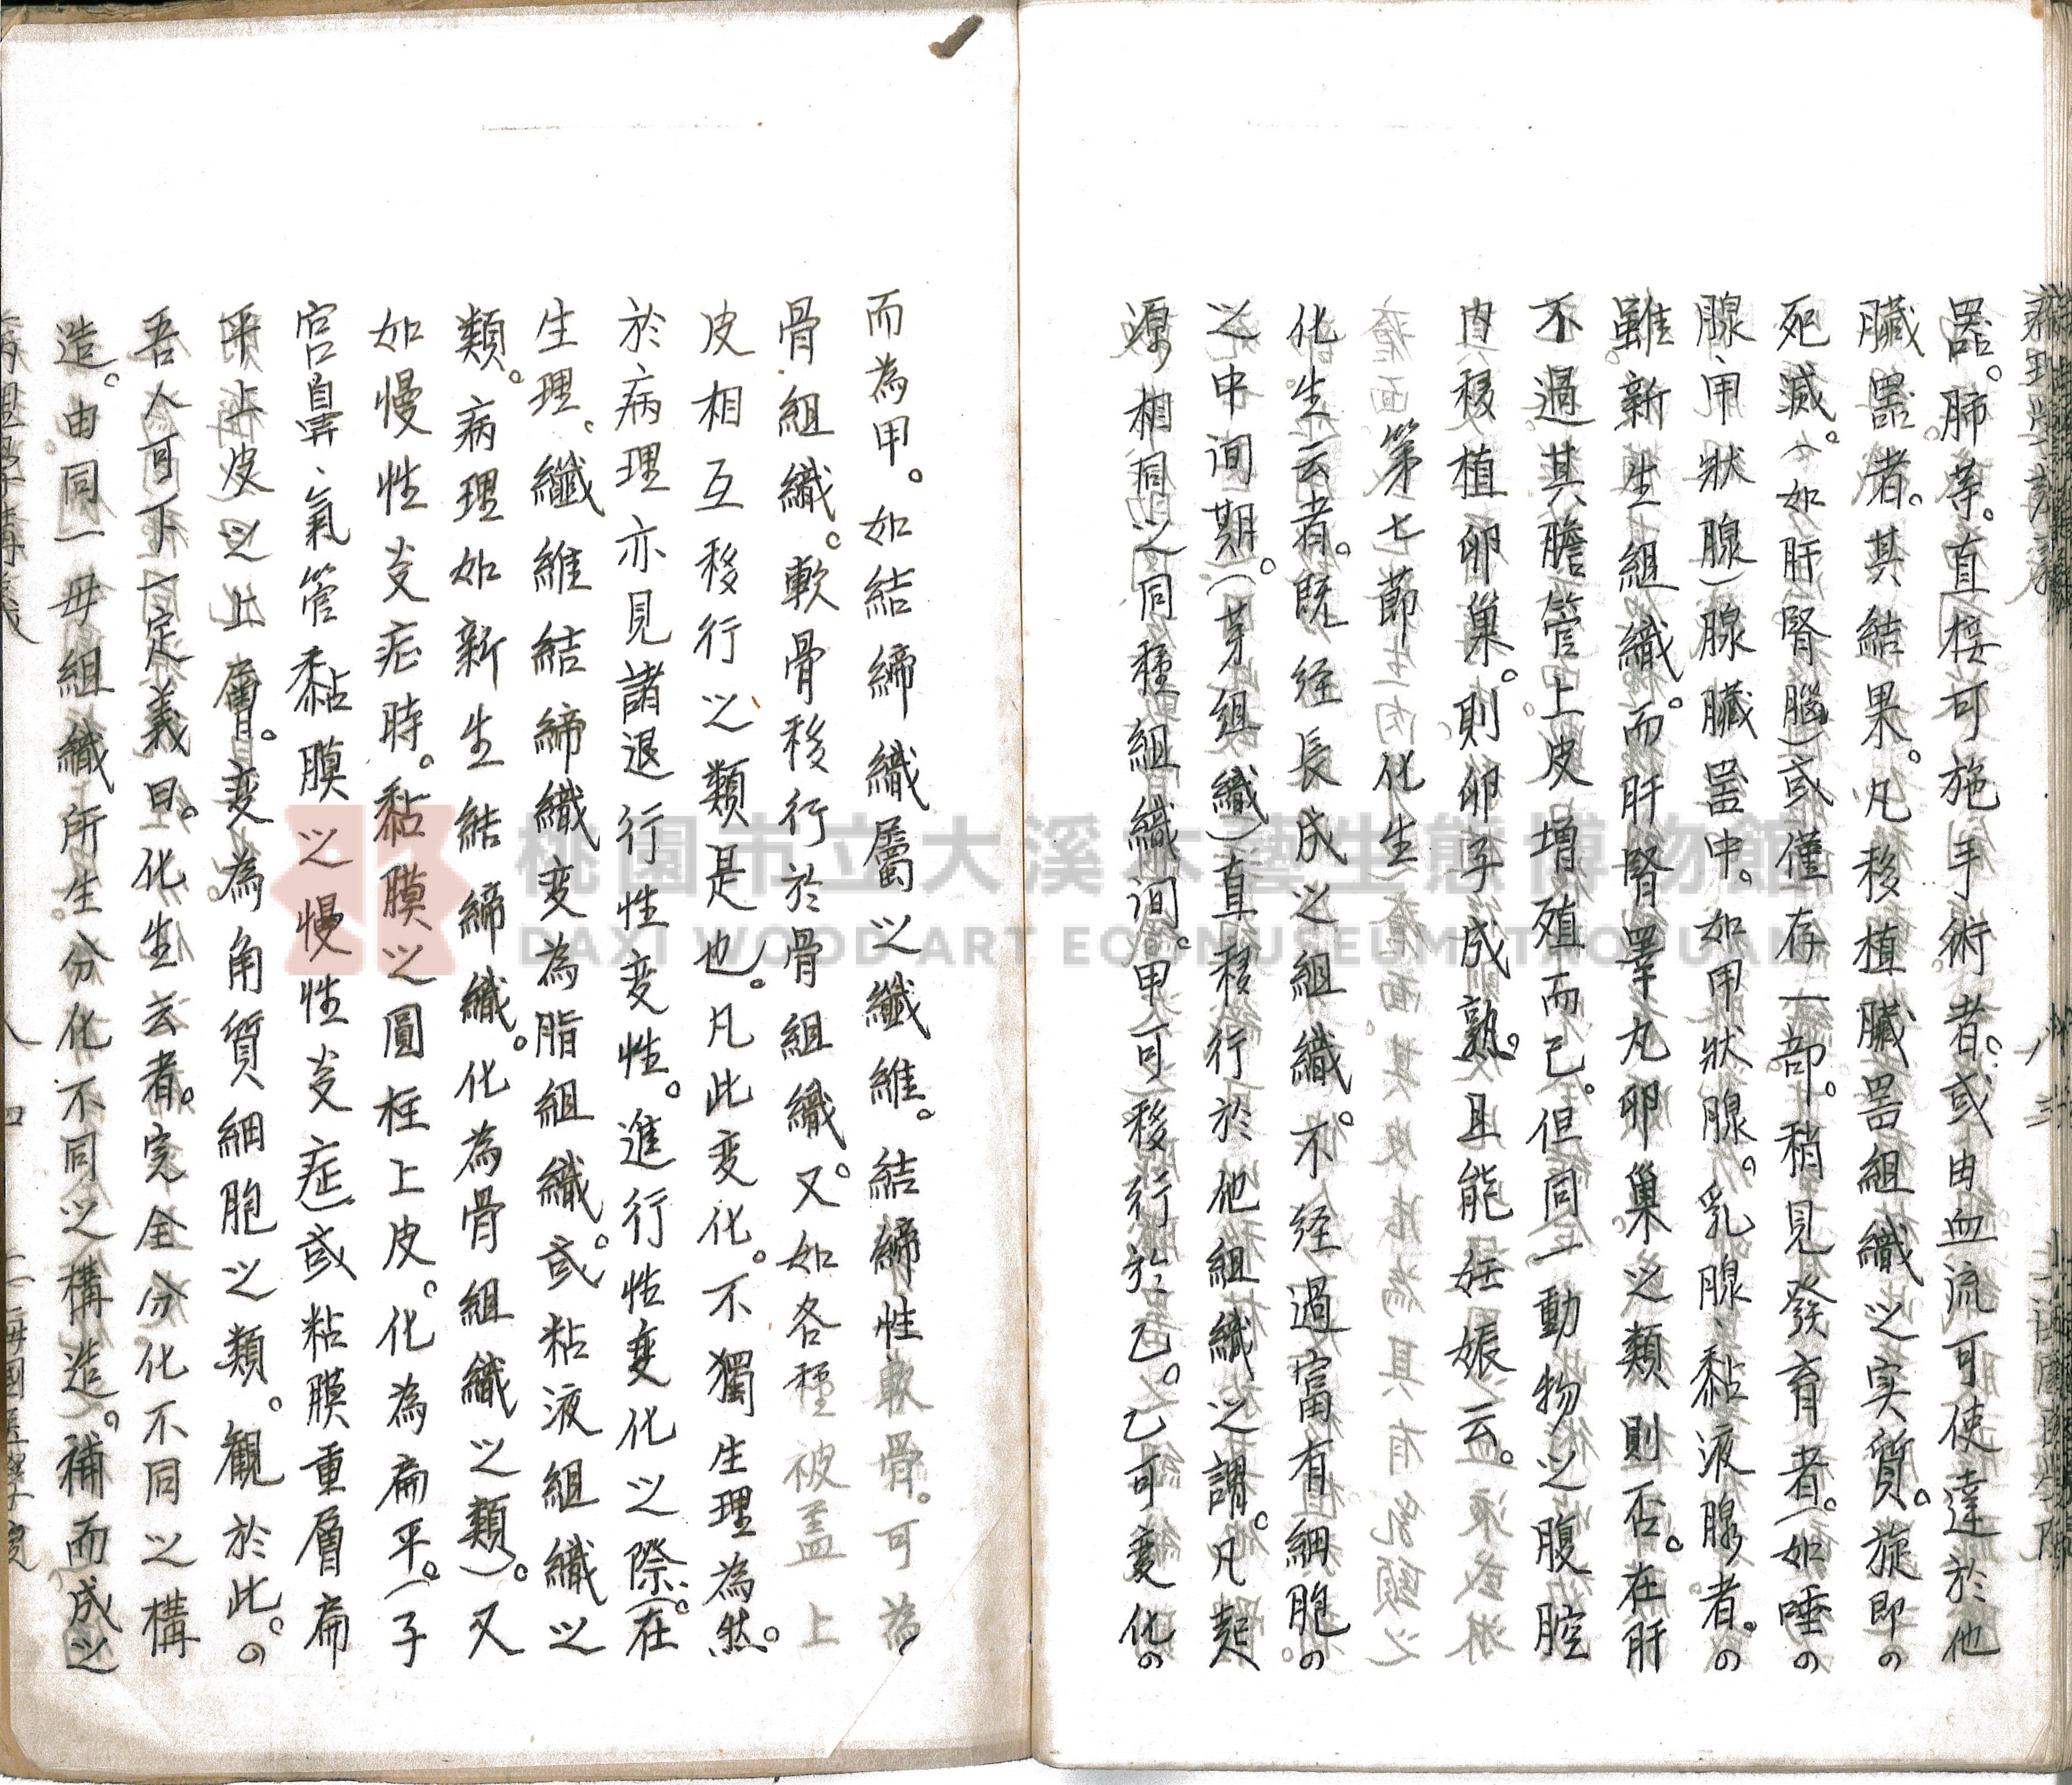 器。肺等。直接可施手術者。或由血流可使達於他
臟器者。其結果。凡移植臟器組織之实質。旋即の
死滅。(如肝腎腦)或僅存一部。稍見發育者。(如唾の
腺、甲狀腺)腺臟器中。如甲狀腺。乳腺、黏液腺者。の
雖新生組織。而肝腎睪丸卵巢之類則否。在肝
不過其膽管上皮增殖而已。但同一動物之腹腔
內移植卵巢。則卵子成熟。且能妊娠云。
第七節 化生
化生云者。既経長成之組織。不経過富有細胞の
之中间期。(芽組織)直移行於他組織之謂。凡起
源相同之同種組織间。甲可移行於乙。乙可变化の
而為甲。如結締織屬之纖維。結締性軟骨。可為
骨組織。軟骨移行於骨組織。又如各種被盖上
皮相互移行之類是也。凡此变化。不獨生理為然。
於病理亦見諸退行性变性。進行性变化之際。(在
生理。纖維結締織变為脂組織。或粘液組織之
類。病理如新生結締織。化為骨組織之類)。又
如慢性炎症時。黏膜之圓柱上皮。化為扁平。(子
宮鼻、氣管黏膜之慢性炎症)或粘膜重層扁
平上皮之上層。变為角質細胞之類。観於此。の
吾人可下一定義曰。化生云者。完全分化不同之構
造。由同一母組織所生分化不同之構造。補而成之
桃園市立大溪木藝生態博物館
DAXI WOOD ART ECOMUSEUM TAOYUAN